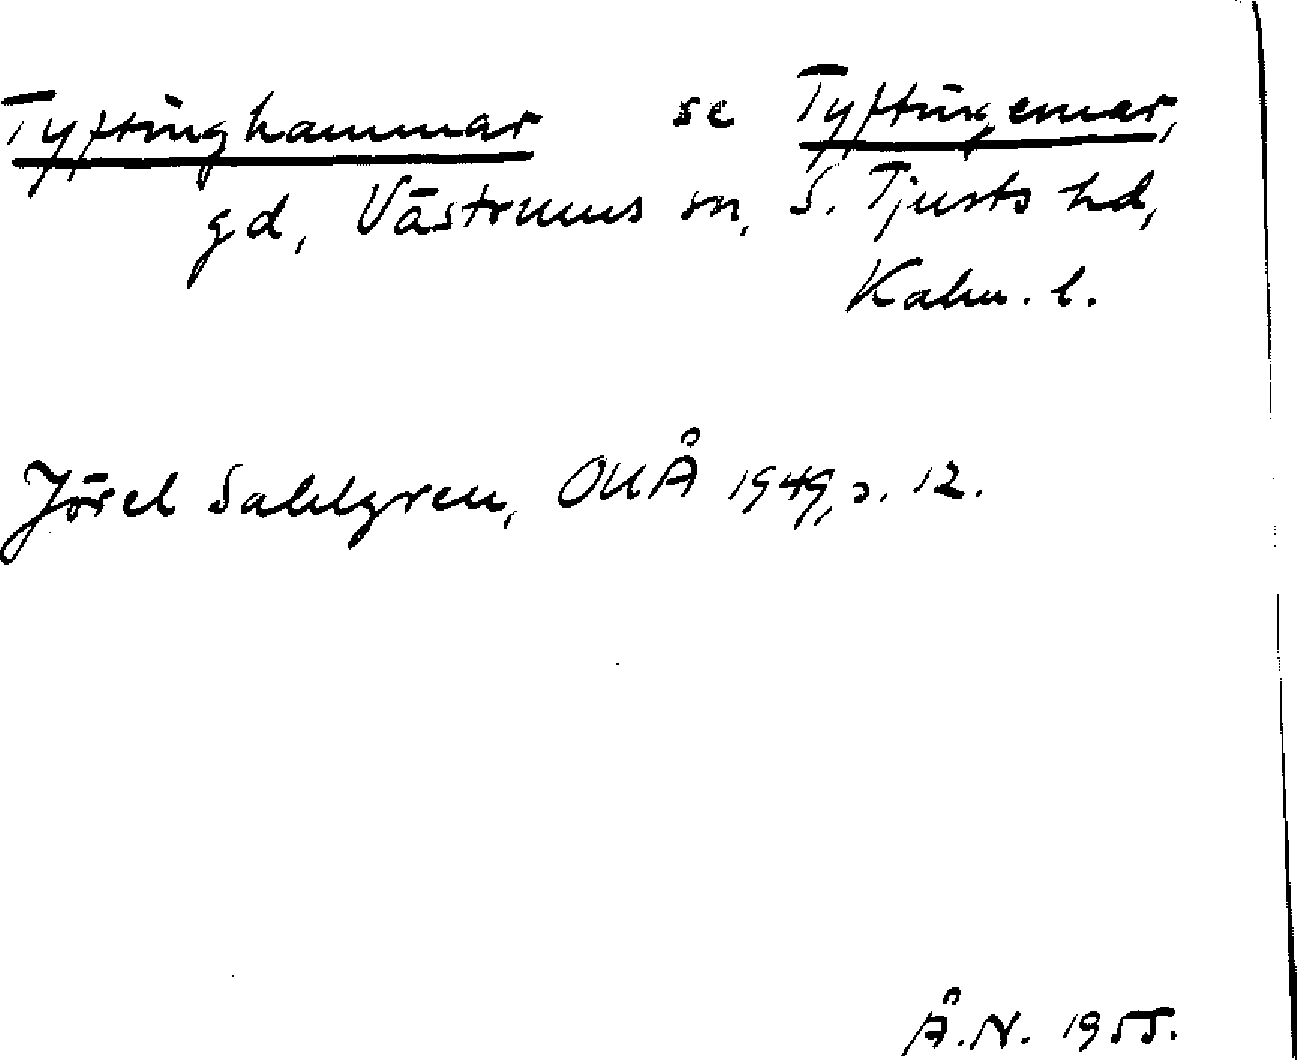 Tyftinghammar se Tyftingemar,
gd, Västrums sn, S. Tjusts hd,
Kalm. l.
Jöran Sahlgren, OUÅ 1949, s. 12.
Å.N. 1955.